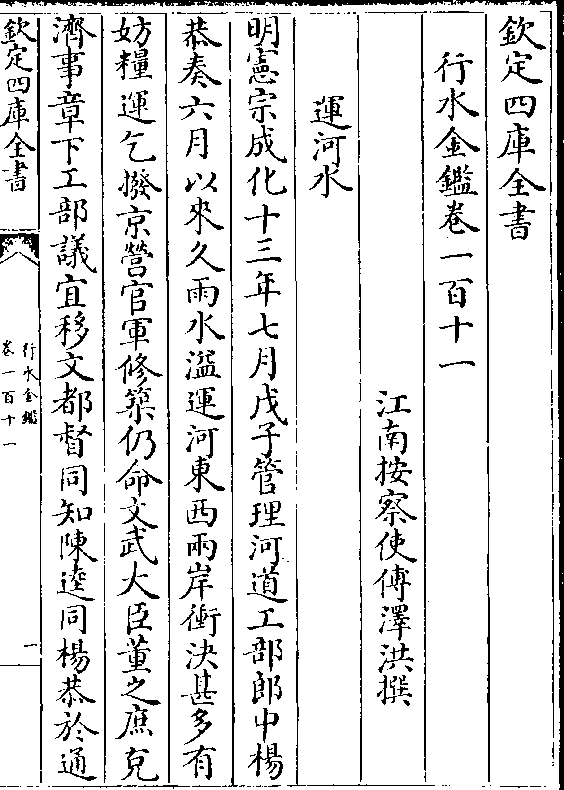 欽定四庫全書
行水金鑑卷一百十一
江南按察使傅澤洪撰
運河水
明憲宗成化十三年七月戊子管理河道工部郎中楊
恭奏六月以來久雨水溢運河東西兩岸衝決甚多有
妨糧運乞撥京營官軍修築仍命文武大臣董之庶克
濟事章下工部議宜移文都督同知陳逵同楊恭於通
欽定四庫全書
行水金鑑
卷一百十一
一